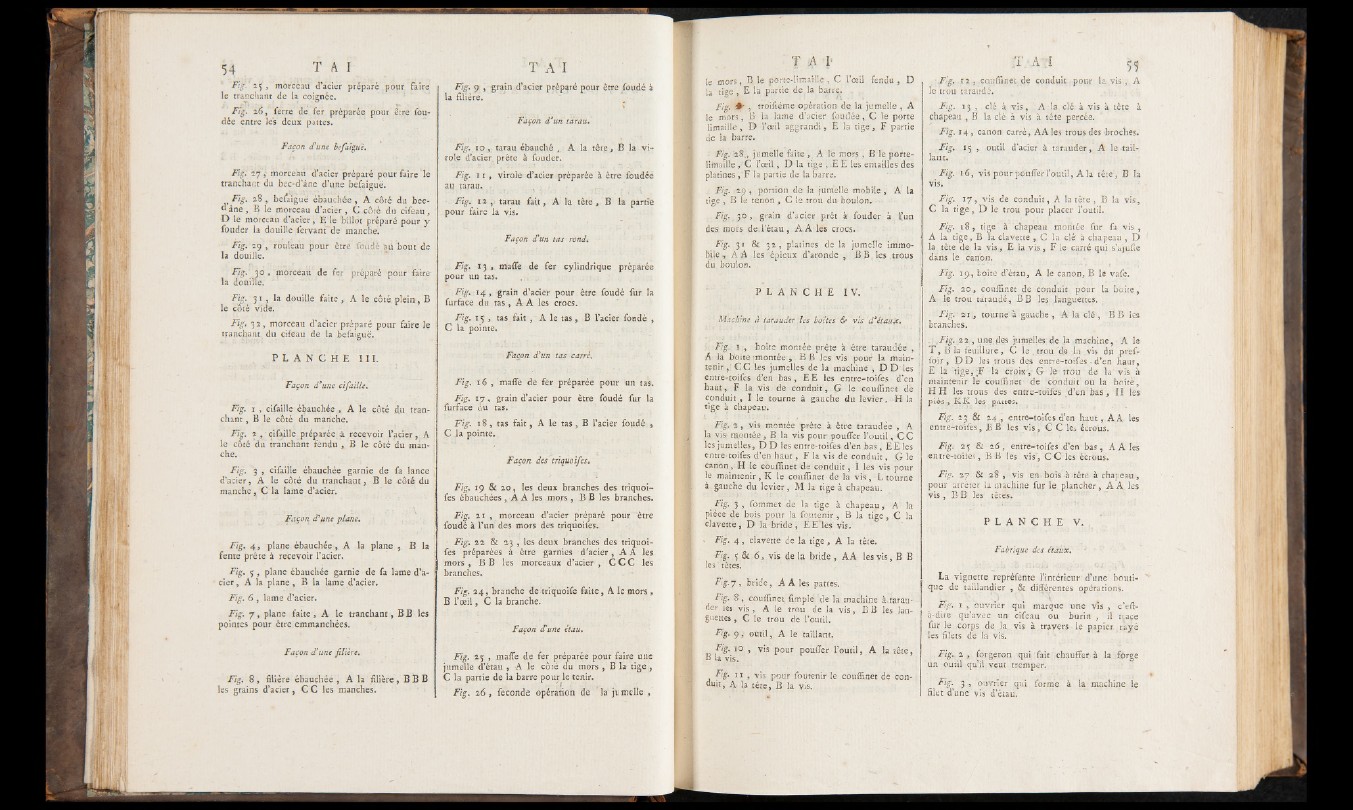 54 T A I
Fig. 25, morceau d'acier préparé pour faire
le tranchant de la coignée.
Fig. 26, ferre de fer préparée pour être sou-
dée entre les deux pattes.
Façon d'une besaiguë.
Fig. 27, morceau d'acier préparé pour faire le
tranchant du bec-d'âne d'une besaiguë.
Fig. 28, besaiguë ébauchée, A côté du bec-
d'âne, B le morceau d'acier, C côté du ciseau,
D le morceau d'acier, E le billot préparé pour y
souder la douille servant de manche.
Fig. 29, rouleau pour être soudé au bout de
la douille.
Fig. 30, morceau de fer préparé pour faire
la douille.
Fig. 31, la douille faite, A le côté plein, B
le côté vide.
Fig. 32, morceau d'acier préparé pour faire le
tranchant du ciseau de la besaiguë.
PLANCHE III.
Façon d'une cisaille.
Fig. 1, cisaille ébauchée, A le côté du tran-
chant, B le côté du manche.
Fig. 2, cisaille préparée à recevoir l'acier, A
le côté du tranchant fendu, B le côté du man-
che.
Fig. 3, cisaille ébauchée garnie de sa lance
d'acier, A le côté du tranchant, B le côté du
manche, C la lame d'acier.
Façon d'une plane.
Fig. 4, plane ébauchée, A la plane, B la
fente prête à recevoir l'acier.
Fig. 5, plane ébauchée garnie de sa lame d'a-
cier, A la plane, B la lame d'acier.
Fig. 6, lame d'acier.
Fig. 7, plane faite, A le tranchant, BB les
pointes pour être emmanchées.
Façon d'une filière.
Fig. 8, filière ébauchée, A la filière, BBB
les grains d'acier, CC les manches.
T A I
Fig. 9, grain d'acier préparé pour être soudé à
la filière.
Façon d'un tarau.
Fig. 10, tarau ébauché, A la tête, B la vi-
role d'acier prête à souder.
Fig. 11, virole d'acier préparée à être soudée
au tarau.
Fig. 12, tarau fait, A la tête, B la partie
pour faire la vis.
Façon d'un tas rond.
Fig. 13, masse de fer cylindrique préparée
pour un tas.
Fig. 14, grain d'acier pour être soudé sur la
surface du tas, AA les crocs.
Fig. 15, tas fait, A le tas, B l'acier soudé,
C la pointe.
Façon d'un tas carré.
Fig. 16, masse de fer préparée pour un tas.
Fig. 17, grain d'acier pour être soudé sur la
surface du tas.
Fig. 18, tas fait, A le tas, B l'acier soudé,
C la pointe.
Façon des triquoises.
Fig. 19 & 20, les deux branches des triquoi-
ses ébauchées, AA les mors, BB les branches.
Fig. 21, morceau d'acier préparé pour être
soudé à l'un des mors des triquoises.
Fig. 22 & 23, les deux branches des triquoi-
ses préparées à être garnies d'acier, AA les
mors, BB les morceaux d'acier, CCC les
branches.
Fig. 24, branche de triquoise faite, A le mors,
B l'œil, C la branche.
Façon d'une étau.
Fig. 25, masse de fer préparée pour faire une
jumelle d'étau, A le côté du mors, B la tige,
C la partie de la barre pour le tenir.
Fig. 26, seconde opération de la jumelle,
T A I
le mors, B le porte-limaille, C l'œil fendu, D
la tige, E la partie de la barre.
Fig. , troisième opération de la jumelle, A
le mors, B la lame d'acier soudée, C le porte
limaille, D l'œil aggrandi, E la tige, F partie
de la barre.
Fig. 28, jumelle faite, A le mors, B le porte-
limaille, C l'œil, D la tige, EE les entailles des
platines, F la partie de la barre.
Fig. 29, portion de la jumelle mobile, A la
tige, B le tenon, C le trou du boulon.
Fig. 30, grain d'acier prêt à souder à l'un
des mors de l'étau, AA les crocs.
Fig. 31 & 32, platines de la jumelle immo-
bile, AA les épieux d'aronde, BB les trous
du boulon.
PLANCHE IV.
Machine à tarauder les boîtes & vis d'étaux.
Fig. 1, boîte montée prête à être taraudée,
A la boîte montée, BB les vis pour la main-
tenir, CC les jumelles de la machine, DD les
entre-toises d'en bas, EE les entre-toises d'en
haut, F la vis de conduit, G le coussinet de
conduit, I le tourne à gauche du levier, H la
tige à chapeau.
Fig. 2, vis montée prête à être taraudée, A
la vis montée, B la vis pour pousser l'outil, CC
les jumelles, DD les entre-toises d'en bas, EE les
entre-toises d'en haut, F la vis de conduit, G le
canon, H le coussinet de conduit, I les vis pour
le maintenir, K le coussinet de la vis, L tourne
à gauche du levier, M la tige à chapeau.
Fig. 3, sommet de la tige à chapeau, A la
pièce de bois pour la soutenir, B la tige, C la
clavette, D la bride, EE les vis.
Fig. 4, clavette de la tige, A la tête.
Fig. 5 & 6, vis de la bride, AA les vis, BB
les têtes.
Fig. 7, bride, AA les pattes.
Fig. 8, coussinet simple de la machine à tarau-
der les vis, A le trou de la vis, BB les lan-
guettes, C le trou de l'outil.
Fig. 9, outil, A le taillant.
Fig. 10, vis pour pousser l'outil, A la tête,
B la vis.
Fig. 11, vis pour soutenir le coussinet de con-
duit, A la tête, B la vis.
T A I 55
Fig. 12, coussinet de conduit pour la vis, A
le trou taraudé.
Fig. 13, clé à vis, A la clé à vis à tête à
chapeau, B la clé à vis à tête percée.
Fig. 14, canon carré, AA les trous des broches.
Fig. 15, outil d'acier à tarauder, A le tail-
lant.
Fig. 16, vis pour pousser l'outil, A la tête, B la
vis.
Fig. 17, vis de conduit, A la tête, B la vis,
C la tige, D le trou pour placer l'outil.
Fig. 18, tige à chapeau montée sur sa vis,
A la tige, B la clavette, C la clé à chapeau, D
la tête de la vis, E la vis, F le carré qui s'ajuste
dans le canon.
Fig. 19, boîte d'étau, A le canon, B le vase.
Fig. 20, coussinet de conduit pour la boîte,
A le trou taraudé, BB les languettes.
Fig. 21, tourne à gauche, A la clé, BB les
branches.
Fig. 22, une des jumelles de la machine, A le
T, B la feuillure, C le trou de la vis du pres-
soir, DD les trous des entre-toises d'en haut,
E la tige, F la croix, G le trou de la vis à
maintenir le coussinet de conduit ou la boîte,
HH les trous des entre-toises d'en bas, II les
piés, KK les pattes.
Fig. 23 & 24, entre-toises d'en haut, AA les
entre-toises, BB les vis, CC les écrous.
Fig. 25 & 26, entre-toises d'en bas, AA les
entre-toises, BB les vis, CC les écrous.
Fig. 27 & 28, vis en bois à tête à chapeau,
pour arrêter la machine sur le plancher, AA les
vis, BB les têtes.
PLANCHE V.
Fabrique des étaux.
La vignette représente l'intérieur d'une bouti-
que de taillandier, & différentes opérations.
Fig. 1, ouvrier qui marque une vis, c'est-
à-dire qu'avec un ciseau ou burin, il trace
sur le corps de la vis à travers le papier rayé
les filets de la vis.
Fig. 2, forgeron qui fait chauffer à la forge
un outil qu'il veut tremper.
Fig. 3, ouvrier qui forme à la machine le
filet d'une vis d'étau.